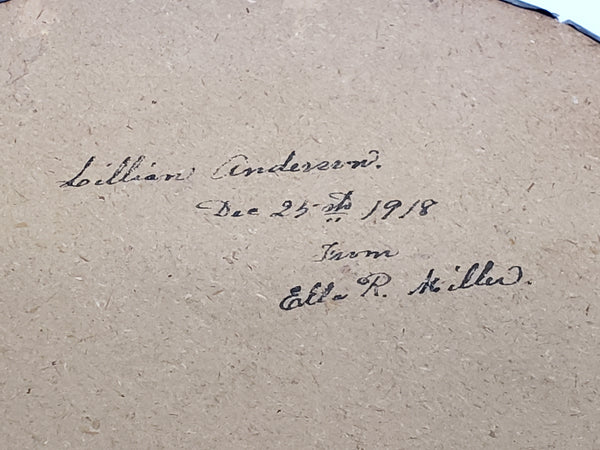 Lillian Anderson.
Dec 25th 1918
From
Ella R. Miller.